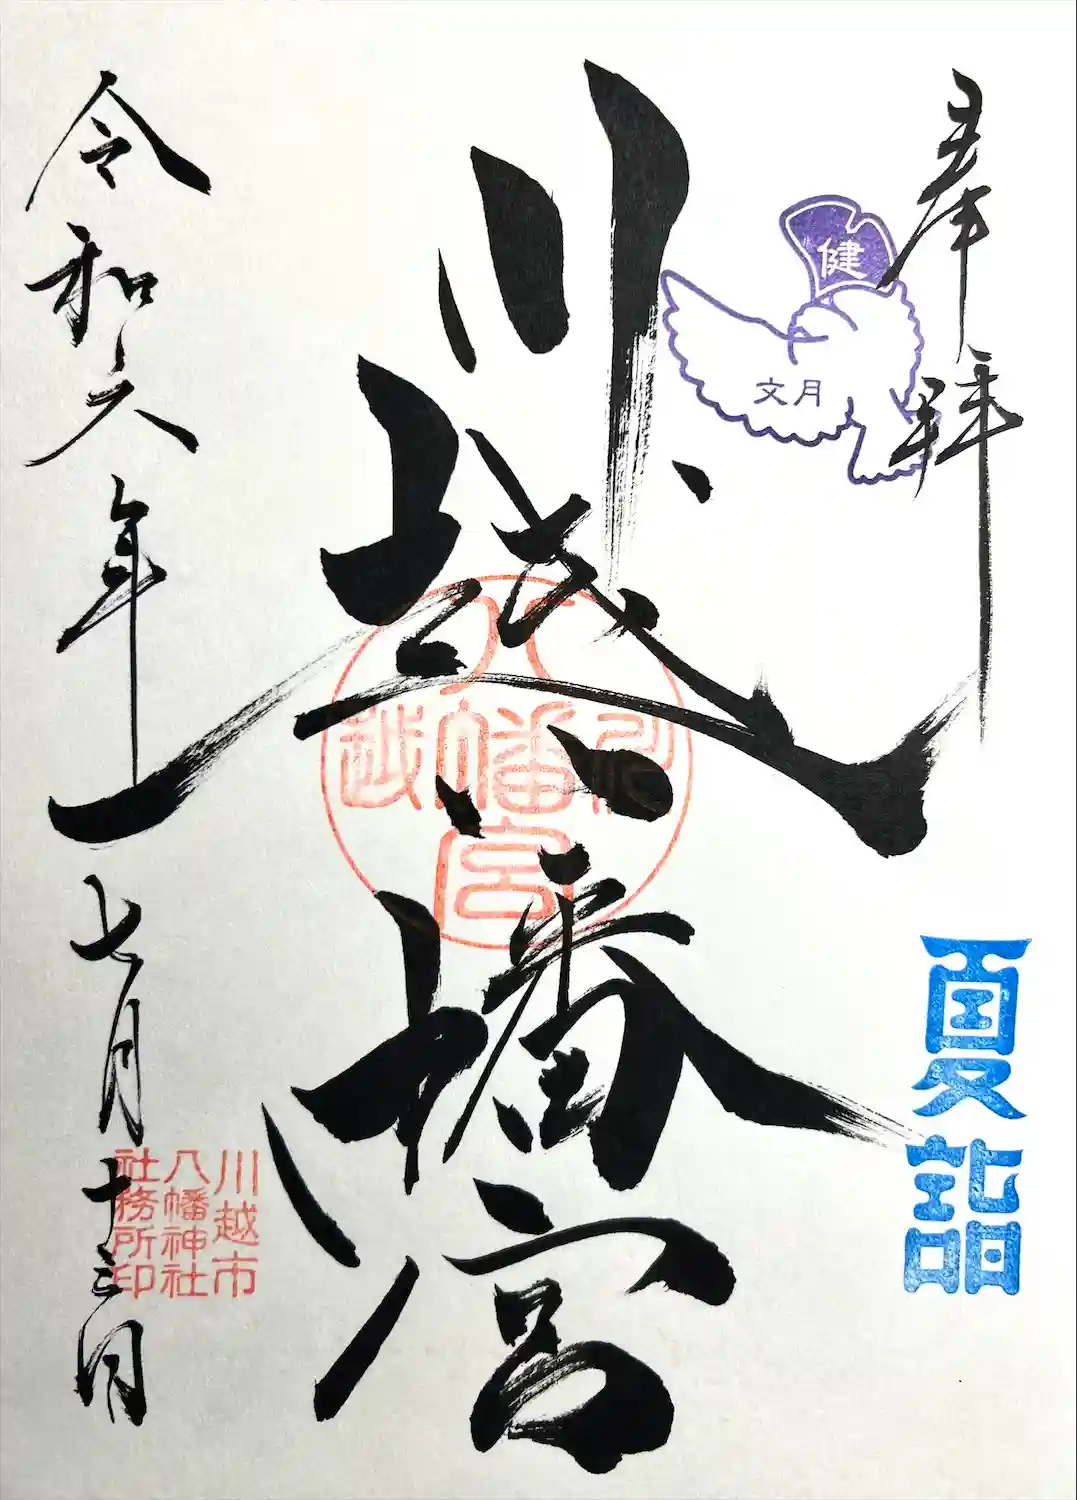 奉拝
健
文月
夏詣
川越八幡宮
川越八幡宮
川越市
八幡神社
社務所印
令和六年七月十三日